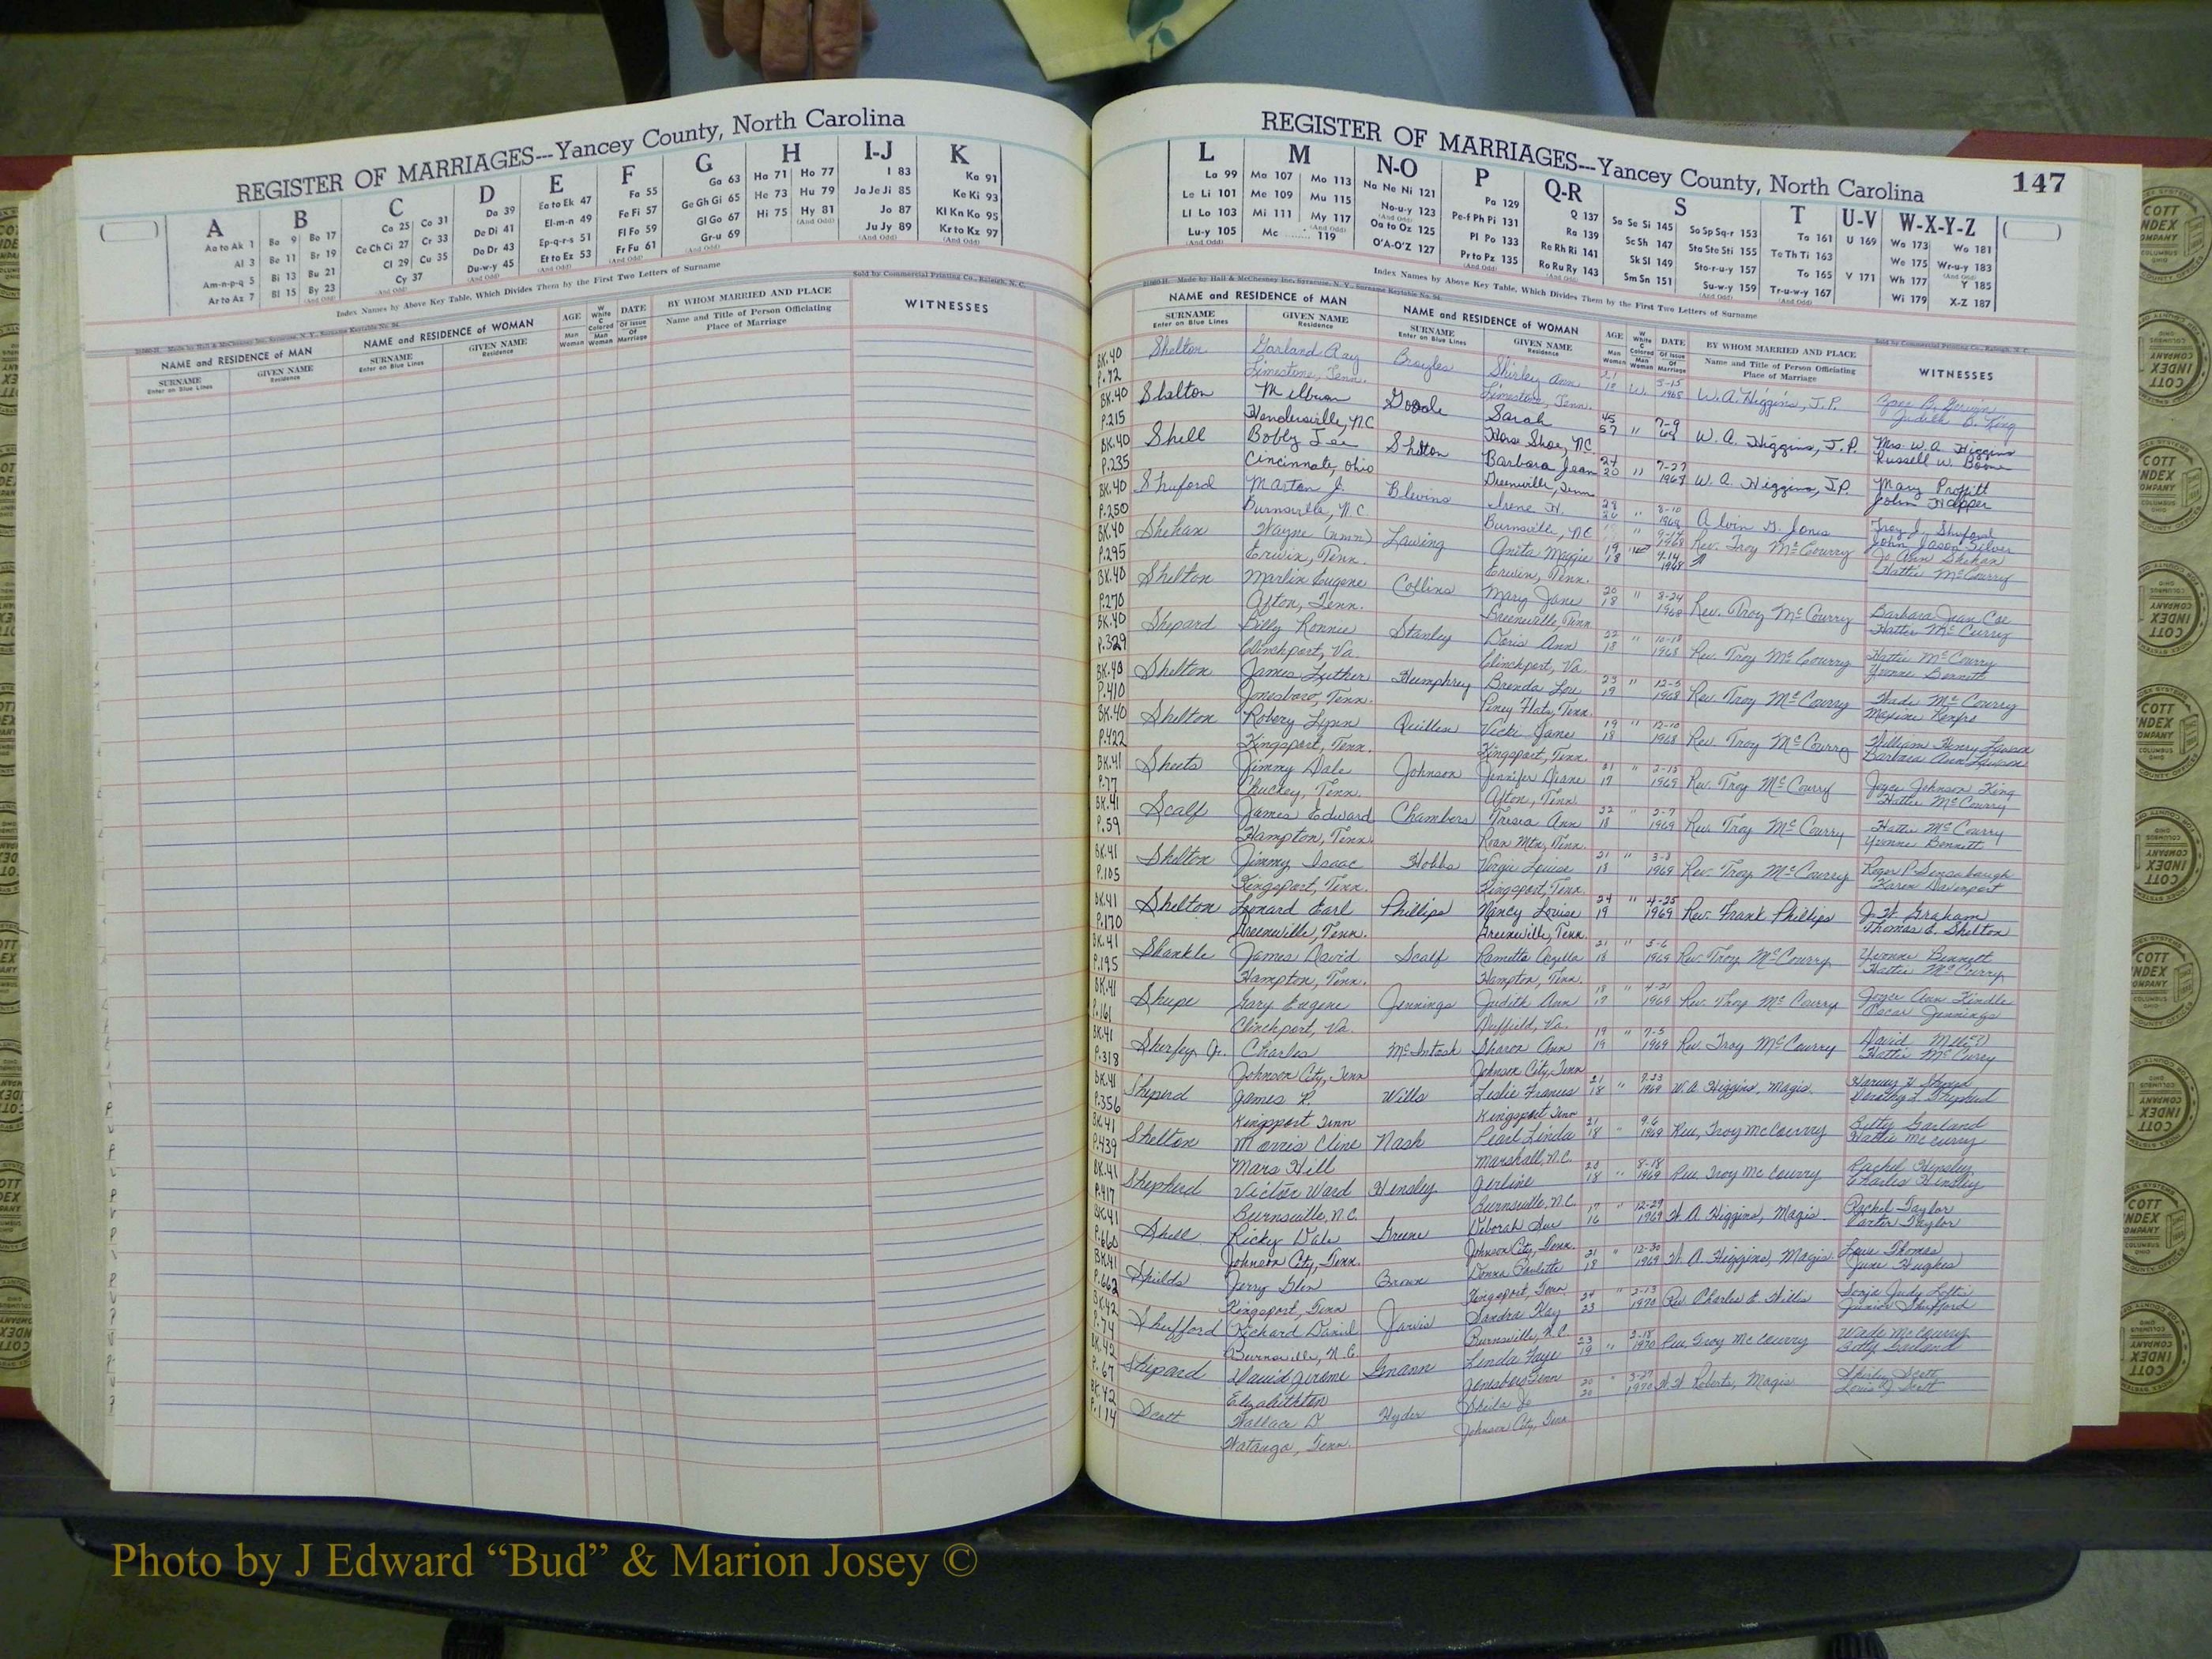 REGISTER OF MARRIAGES---Yancey County, North Carolina
A B C D E F G H I-J K
Aa to Ak 1 Ba 9 Bo 17 Ca 25 Co 31 Da 39 Ea to Ek 47 Fa 55 Ga 63 Ha 71 Ho 77 I 83 Ka 91
Al 3 Be 11 Br 19 Ce Ch Ci 27 Cr 33 De Di 41 El-m-n 49 Fe Fi 57 Ge Gh Gi 65 He 73 Hu 79 Ja Je Ji 85 Ke Ki 93
Am-n-p-q 5 Bi 13 Bu 21 Cl 29 Cu 35 Do Dr 43 Ep-q-r-s 51 Fl Fo 59 Gl Go 67 Hi 75 Hy 81 Jo 87 Kl Kn Ko 95
Ar to Az 7 Bl 15 By 23 Cy 37 Du-w-y 45 Et to Ez 53 Fr Fu 61 Gr-u 69 Ju Jy 89 Kr to Kz 97
Index Names by Above Key Table, Which Divides Them by the First Two Letters of Surname
Sold by Commercial Printing Co., Raleigh, N. C.
NAME and RESIDENCE OF MAN NAME and RESIDENCE OF WOMAN AGE DATE BY WHOM MARRIED AND PLACE WITNESSES
SURNAME Enter on Blue Lines GIVEN NAME Residence SURNAME Enter on Blue Lines GIVEN NAME Residence Man Woman W White C Colored Man Woman Of Issue Of Marriage Name and Title of Person Officiating Place of Marriage
REGISTER OF MARRIAGES---Yancey County, North Carolina 147
L M N-O P Q-R S T U-V W-X-Y-Z
La 99 Ma 107 Mo 113 Na Ne Ni 121 Pa 129 Q 137 Sa Se Si 145 So Sp Sq-r 153 Ta 161 U 169 Wa 173 Wo 181
Le Li 101 Me 109 Mu 115 No-u-y 123 Pe-f Ph Pi 131 Ra 139 Sc Sh 147 Sta Ste Sti 155 Te Th Ti 163 We 175 Wr-u-y 183
Ll Lo 103 Mi 111 My 117 Oa to Oz 125 Pl Po 133 Re Rh Ri 141 Sk Sl 149 Sto-r-u-y 157 To 165 V 171 Wh 177 Y 185
Lu-y 105 Mc 119 O'A-O'Z 127 Pr to Pz 135 Ro Ru Ry 143 Sm Sn 151 Su-w-y 159 Tr-u-w-y 167 Wi 179 X-Z 187
21080-H Made by Hall & McChesney Inc. Syracuse, N. Y., Surname Keytable No. 94
Index Names by Above Key Table, Which Divides Them by the First Two Letters of Surname
NAME and RESIDENCE OF MAN NAME and RESIDENCE OF WOMAN AGE DATE BY WHOM MARRIED AND PLACE WITNESSES
SURNAME Enter on Blue Lines GIVEN NAME Residence SURNAME Enter on Blue Lines GIVEN NAME Residence Man Woman W White C Colored Man Woman Of Issue Of Marriage Name and Title of Person Officiating Place of Marriage
BK.40 Shelton Garland Ray Broyles Shirley Ann 21 W. 5-15 W.A. Higgins, J.P.
P.72 Limestone, Tenn. Limestone, Tenn. 18 1968 Judith B. King
BK.40 Shelton Milburn Sarah 45 " 7-9 W. A. Higgins, J.P. Mrs. W. A. Higgins
P.215 Hendersonville, NC Horse Shoe, NC 57 68 Russell W. Boone
BK.40 Shell Bobby Joe Shelton Barbara Jean 24 " 7-27 W. A. Higgins, J.P. Mary Proffitt
P.235 Cincinnate, Ohio Greenville, Tenn 20 1968 John Hopper
BK.40 Shuford Marton J. Blevins Irene H. 28 " 8-10 Alvin G. Jones Troy J. Shuford
P.250 Burnsville, N.C Burnsville, NC 26 1968 John Jason Silver
BK.40 Shehan Wayne (nmn) Lawing Anita Magie 19 9-14 Rev. Troy McCourry Jo Ann Shehan
P.295 Erwin, Tenn. Erwin, Tenn. 18 1968 Hattie McCourry
BK.40 Shelton Marlin Eugene Collins Mary Jane 20 " 8-24 Rev. Troy McCourry Barbara Jean Coe
P.270 Afton, Tenn. Greenville, Tenn 18 1968 Hattie McCurry
BK.40 Shepard Billy Ronnie Stanley Doris Ann 22 " 10-18 Rev. Troy McCourry Hattie McCourry
P.329 Clinchport, Va. Clinchport, Va. 18 1968 Yvonne Bennett
BK.40 Shelton James Luther Humphrey Brenda Lou 23 " 12-5 Rev. Troy McCourry Wade McCourry
P.410 Jonesboro, Tenn. Piney Flats, Tenn. 19 1968 Maxine Renfro
BK.40 Shelton Robery Lynn Quillen Vicki Jane 19 " 12-10 Rev. Troy McCourry William Henry Lawson
P.422 Kingsport, Tenn. Kingsport, Tenn. 18 1968 Barbara Ann Lawson
BK.41 Sheets Jimmy Dale Johnson Jennifer Diane 21 " 2-15 Rev. Troy McCourry Joyce Johnson King
P.77 Chuckey, Tenn. Afton, Tenn. 19 1969 Hattie McCourry
BK.41 Scalf James Edward Chambers Tresia Ann 22 " 2-7 Rev. Troy McCourry Hattie McCourry
P.59 Hampton, Tenn. Roan Mtn, Tenn. 18 1969 Yvonne Bennett
BK.41 Shelton Jimmy Isaac Hobbs Virgie Louise 21 " 3-8 Rev. Troy McCourry Roger P. Sensabaugh
P.105 Kingsport, Tenn. Kingsport, Tenn. 18 1969 Karen Davenport
BK.41 Shelton Leonard Earl Phillips Nancy Louise 24 " 4-25 Rev. Frank Phillips J. H. Graham
P.170 Greeneville, Tenn. Greeneville, Tenn. 19 1969 Thomas E. Shelton
BK.41 Shankle James David Scalf Rametta 21 " 5-6 Rev. Troy McCourry Yvonne Bennett
P.195 Hampton, Tenn. Hampton, Tenn. 18 1969 Hattie McCurry
BK.41 Shupe Gary Eugene Jennings Judith Ann 18 " 4-21 Rev. Troy McCourry Joyce Ann Kindle
P.161 Clinchport, Va. Duffield, Va. 17 1969 Oscar Jennings
BK.41 Sherfey, Jr. Charles McIntosh Sharon Ann 19 " 7-5 Rev. Troy McCourry David
P.318 Johnson City, Tenn Johnson City, Tenn 19 1969 Hattie McCurry
BK.41 Sheperd James R. Wills Leslie Frances 21 " 7-23 W. A. Higgins, Magis.
P.356 Kingsport Tenn Kingsport Tenn 18 1969 Dorothy L. Shepherd
BK.41 Shelton Morris Cline Nash Pearl Linda 21 " 9-6 Rev, Troy McCourry Betty Garland
P.439 Mars Hill Marshall, N.C. 18 1969 Hattie McCurry
BK.41 Shepherd Victor Ward Hensley Gerline 23 " 8-18 Rev Troy McCourry Rachel Hensley
P.417 Burnsville, N.C. Burnsville, N.C. 18 1969 Charles Hensley
BK.41 Shell Ricky Dale Greene Deborah Sue 17 " 12-29 W. A. Higgins, Magis. Rachel Taylor
P.660 Johnson City, Tenn. Johnson City, Tenn. 16 1969 Carter Taylor
BK.41 Shields Jerry Glen Brown Donna Paulette 21 " 12-30 W. A. Higgins, Magis. Thomas
P.662 Kingsport, Tenn Kingsport, Tenn 18 1969 June Hughes
BK.42 Shufford Richard Daniel Jarvis Sandra Kay 24 " 2-13 Rev. Charles E. Hills Sonja Judy Loftis
P.74 Burnsville, N.C. Burnsville, N.C. 23 1970 Junior Shufford
BK.42 Shepard David Jerome Gmann Linda Faye 23 " 2-18 Rev Troy McCourry Wade McCourry
P.67 Elizabethton Jonesboro Tenn 19 1970 Betty Garland
BK.42 Scott Wallace D. Hyder Sheila Jo 20 " 3-27 Roberts, Magis Shirley Scott
P.114 Watauga, Tenn. Johnson City, Tenn 20 1970 Louis J. Scott
Photo by J Edward “Bud” & Marion Josey ©